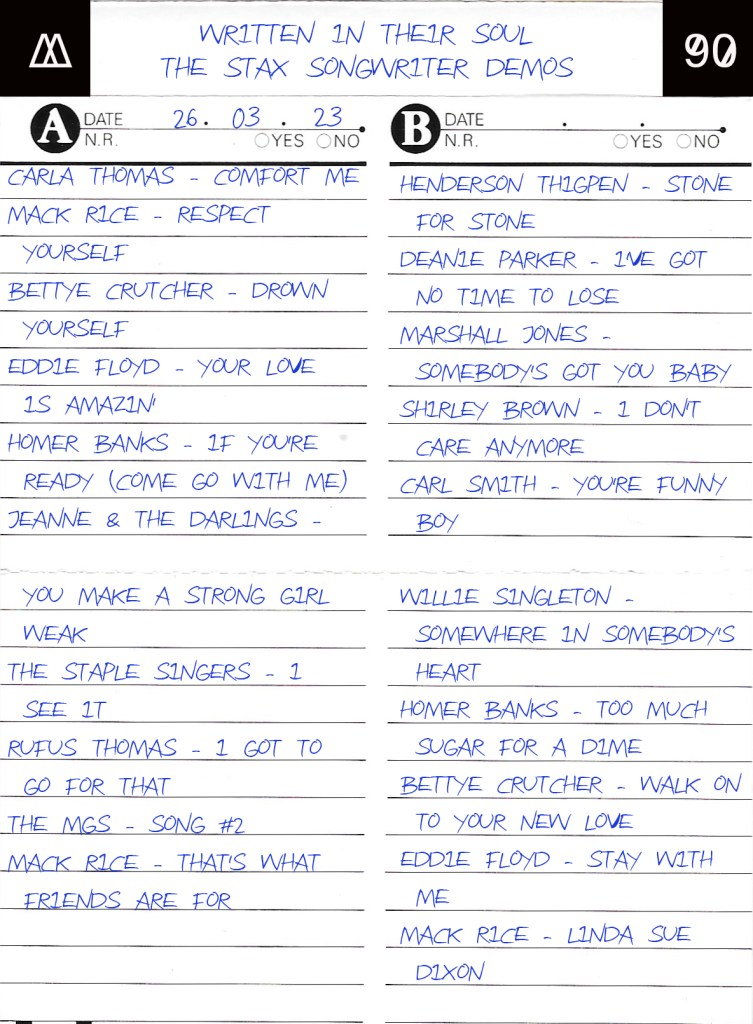 WRITTEN IN THEIR SOUL
THE STAX SONGWRITER DEMOS
90
A DATE 26. 03. 23
N.R. YES NO
CARLA THOMAS - COMFORT ME
MACK RICE - RESPECT
YOURSELF
BETTYE CRUTCHER - DROWN
YOURSELF
EDDIE FLOYD - YOUR LOVE
IS AMAZIN'
HOMER BANKS - IF YOU'RE
READY (COME GO WITH ME)
JEANNE & THE DARLINGS -
YOU MAKE A STRONG GIRL
WEAK
THE STAPLE SINGERS - I
SEE IT
RUFUS THOMAS - I GOT TO
GO FOR THAT
THE MGS - SONG #2
MACK RICE - THAT'S WHAT
FRIENDS ARE FOR
B DATE . .
N.R. YES NO
HENDERSON THIGPEN - STONE
FOR STONE
DEANIE PARKER - I'VE GOT
NO TIME TO LOSE
MARSHALL JONES -
SOMEBODY'S GOT YOU BABY
SHIRLEY BROWN - I DON'T
CARE ANYMORE
CARL SMITH - YOU'RE FUNNY
BOY
WILLIE SINGLETON -
SOMEWHERE IN SOMEBODY'S
HEART
HOMER BANKS - TOO MUCH
SUGAR FOR A DIME
BETTYE CRUTCHER - WALK ON
TO YOUR NEW LOVE
EDDIE FLOYD - STAY WITH
ME
MACK RICE - LINDA SUE
DIXON